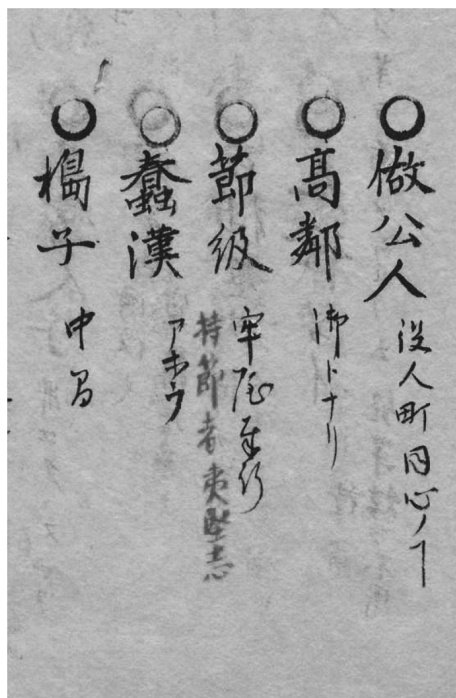 ○做公人 役人町同心ノヿ
○高鄰 御トナリ
○節級 牢屋奉行
持節者夷堅志
○蠢漢 アホウ
○槝子 中間